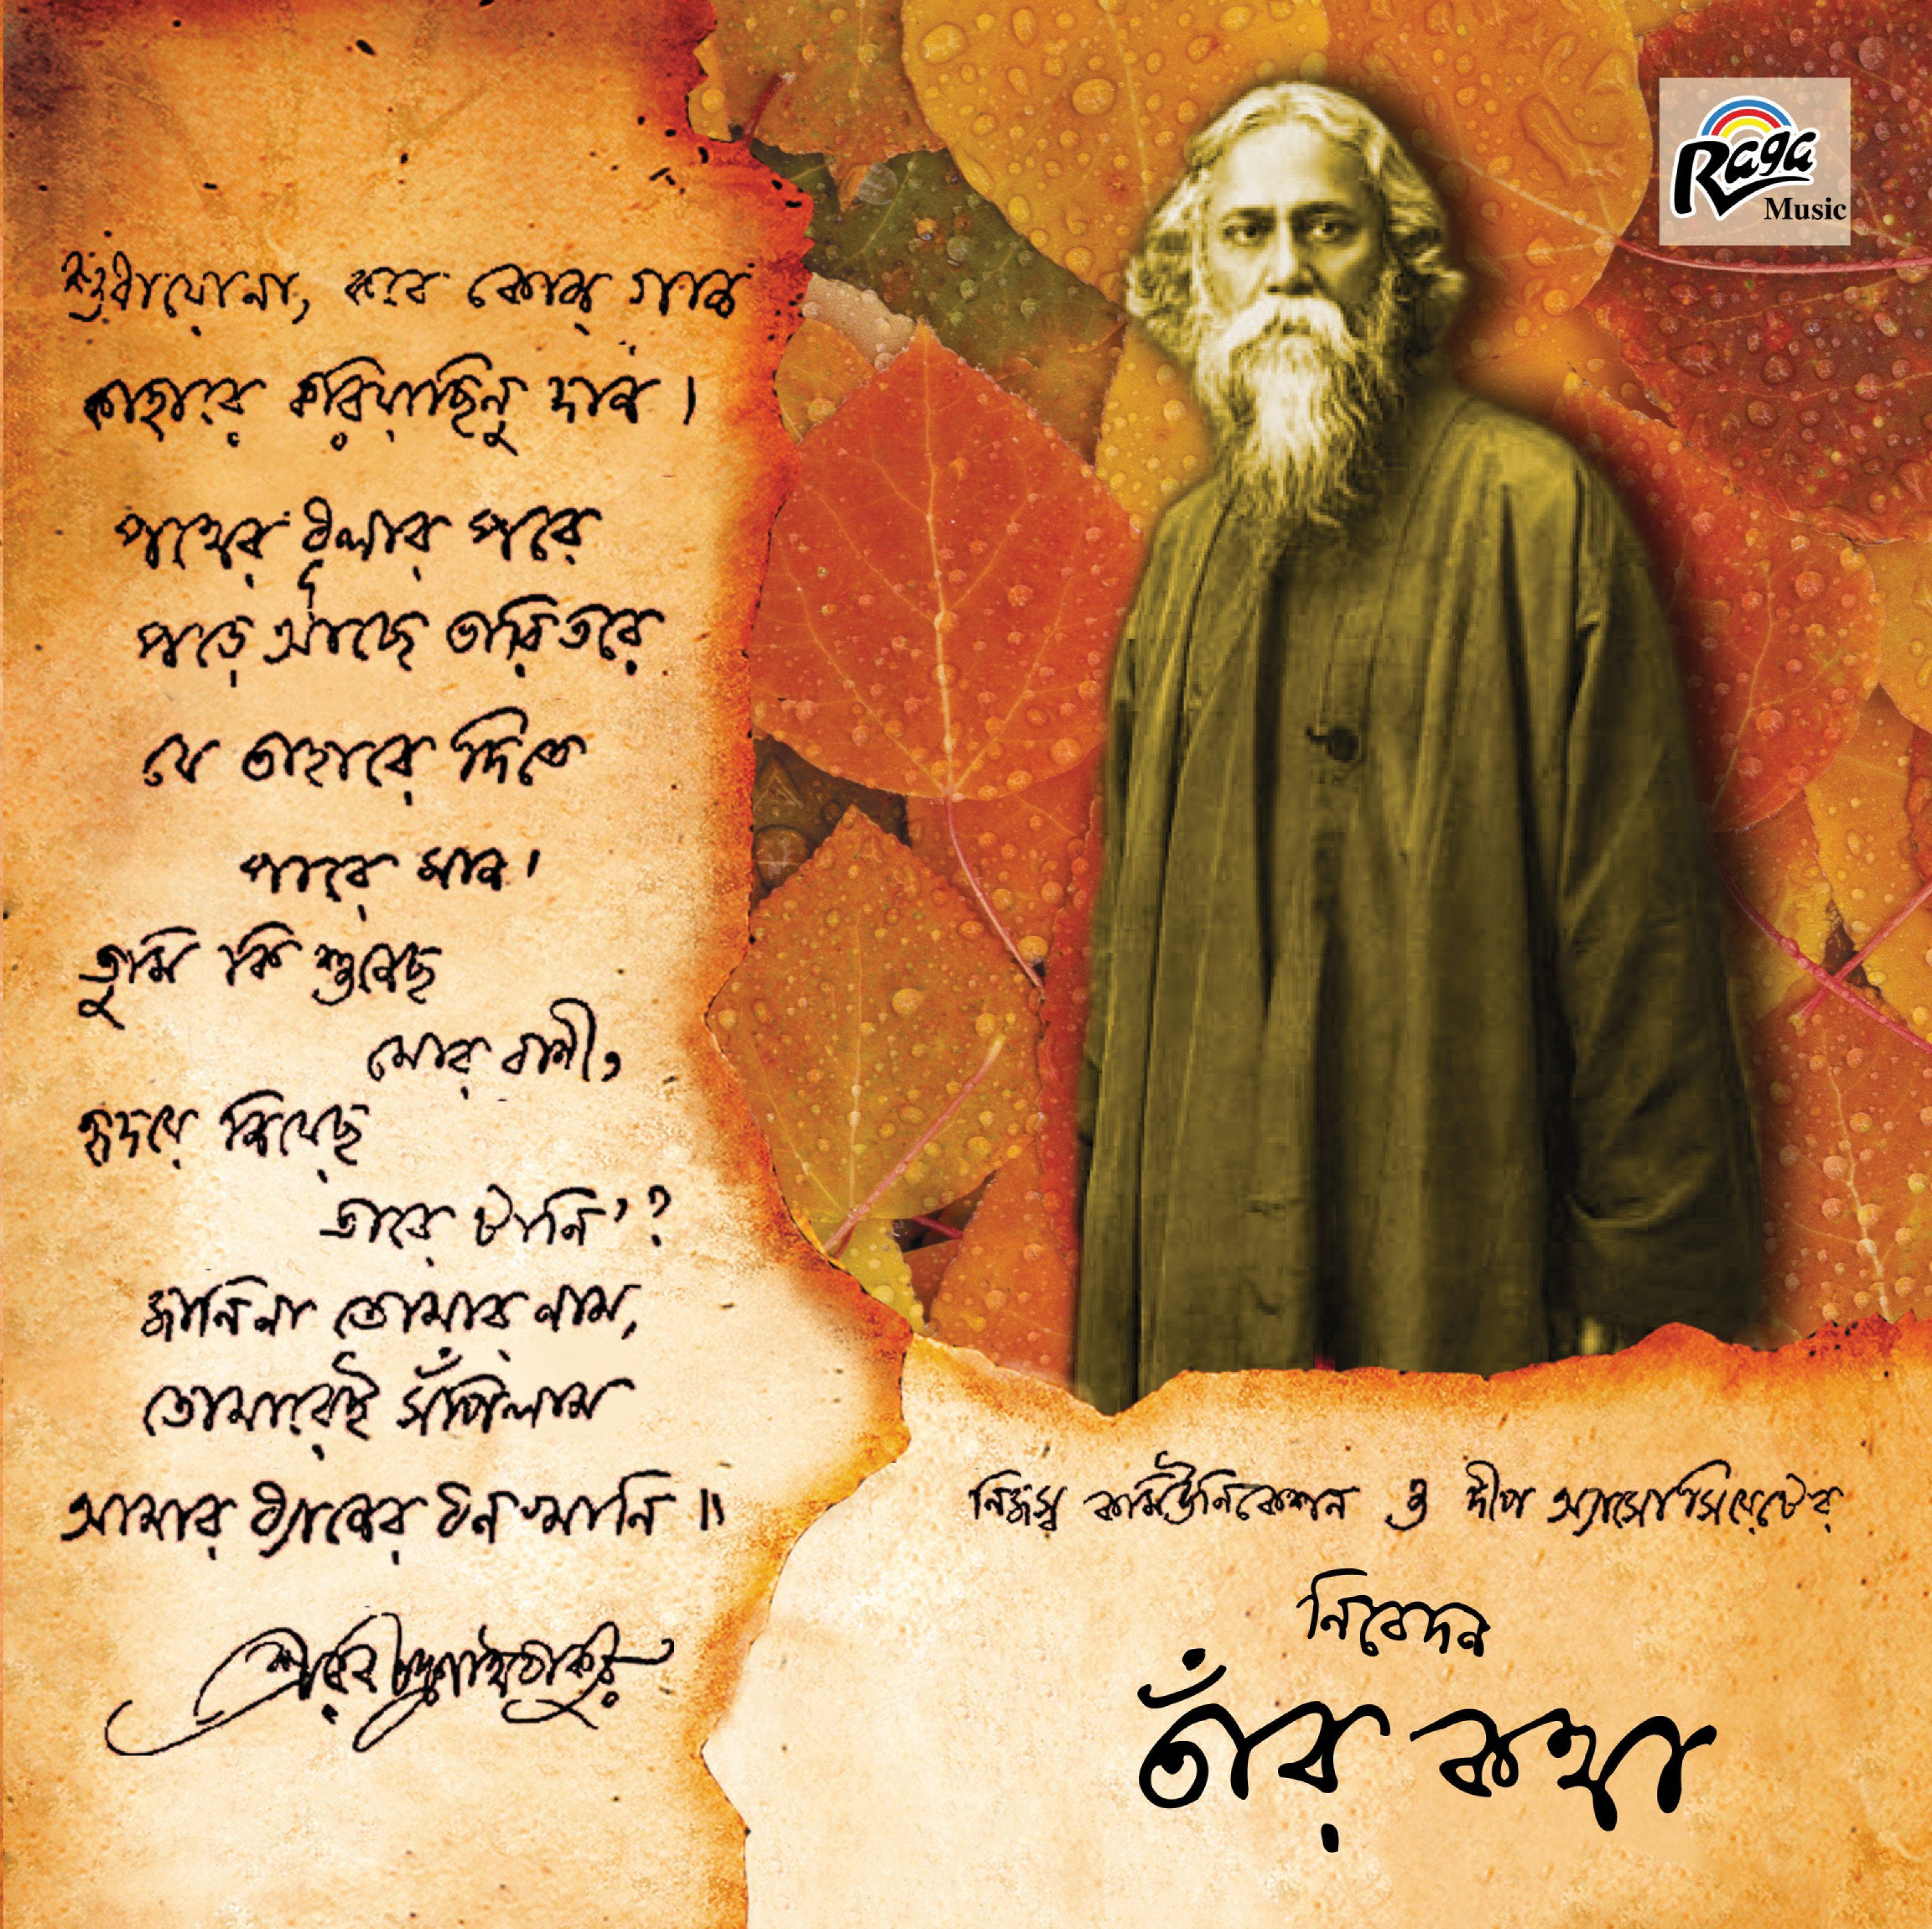 শুধায়োনা, কবে কোন্ গান
কাহারে করিয়াছিনু দান।
পথের ধূলার পরে
পড়ে আছে তারি তরে
যে তাহারে দিতে
পারে মান।
তুমি কি শুনেছ
মোর বাণী,
হৃদয়ে নিয়েছ
তারে টানি'?
জানি না তোমার নাম,
তোমারেই সঁপিলাম
আমার ধ্যানের ধনখানি॥
শ্রীরবীন্দ্রনাথ ঠাকুর
Raga
Music
নিজস্ব কমিউনিকেশন ও দীপ অ্যাসোসিয়েটের
নিবেদন
তাঁর কথা